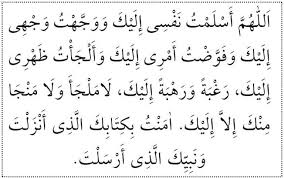 اَللّٰهُمَّ أَسْلَمْتُ نَفْسِى إِلَيْكَ وَوَجَّهْتُ وَجْهِى
إِلَيْكَ وَفَوَّضْتُ أَمْرِى إِلَيْكَ وَأَلْجَأْتُ ظَهْرِى
إِلَيْكَ، رَغْبَةً وَرَهْبَةً إِلَيْكَ، لَامَلْجَأَ وَلَا مَنْجَا
مِنْكَ إِلاَّ إِلَيْكَ. اٰمَنْتُ بِكِتَابِكَ الَّذِى أَنْزَلْتَ
وَنَبِيِّكَ الَّذِى أَرْسَلْتَ.